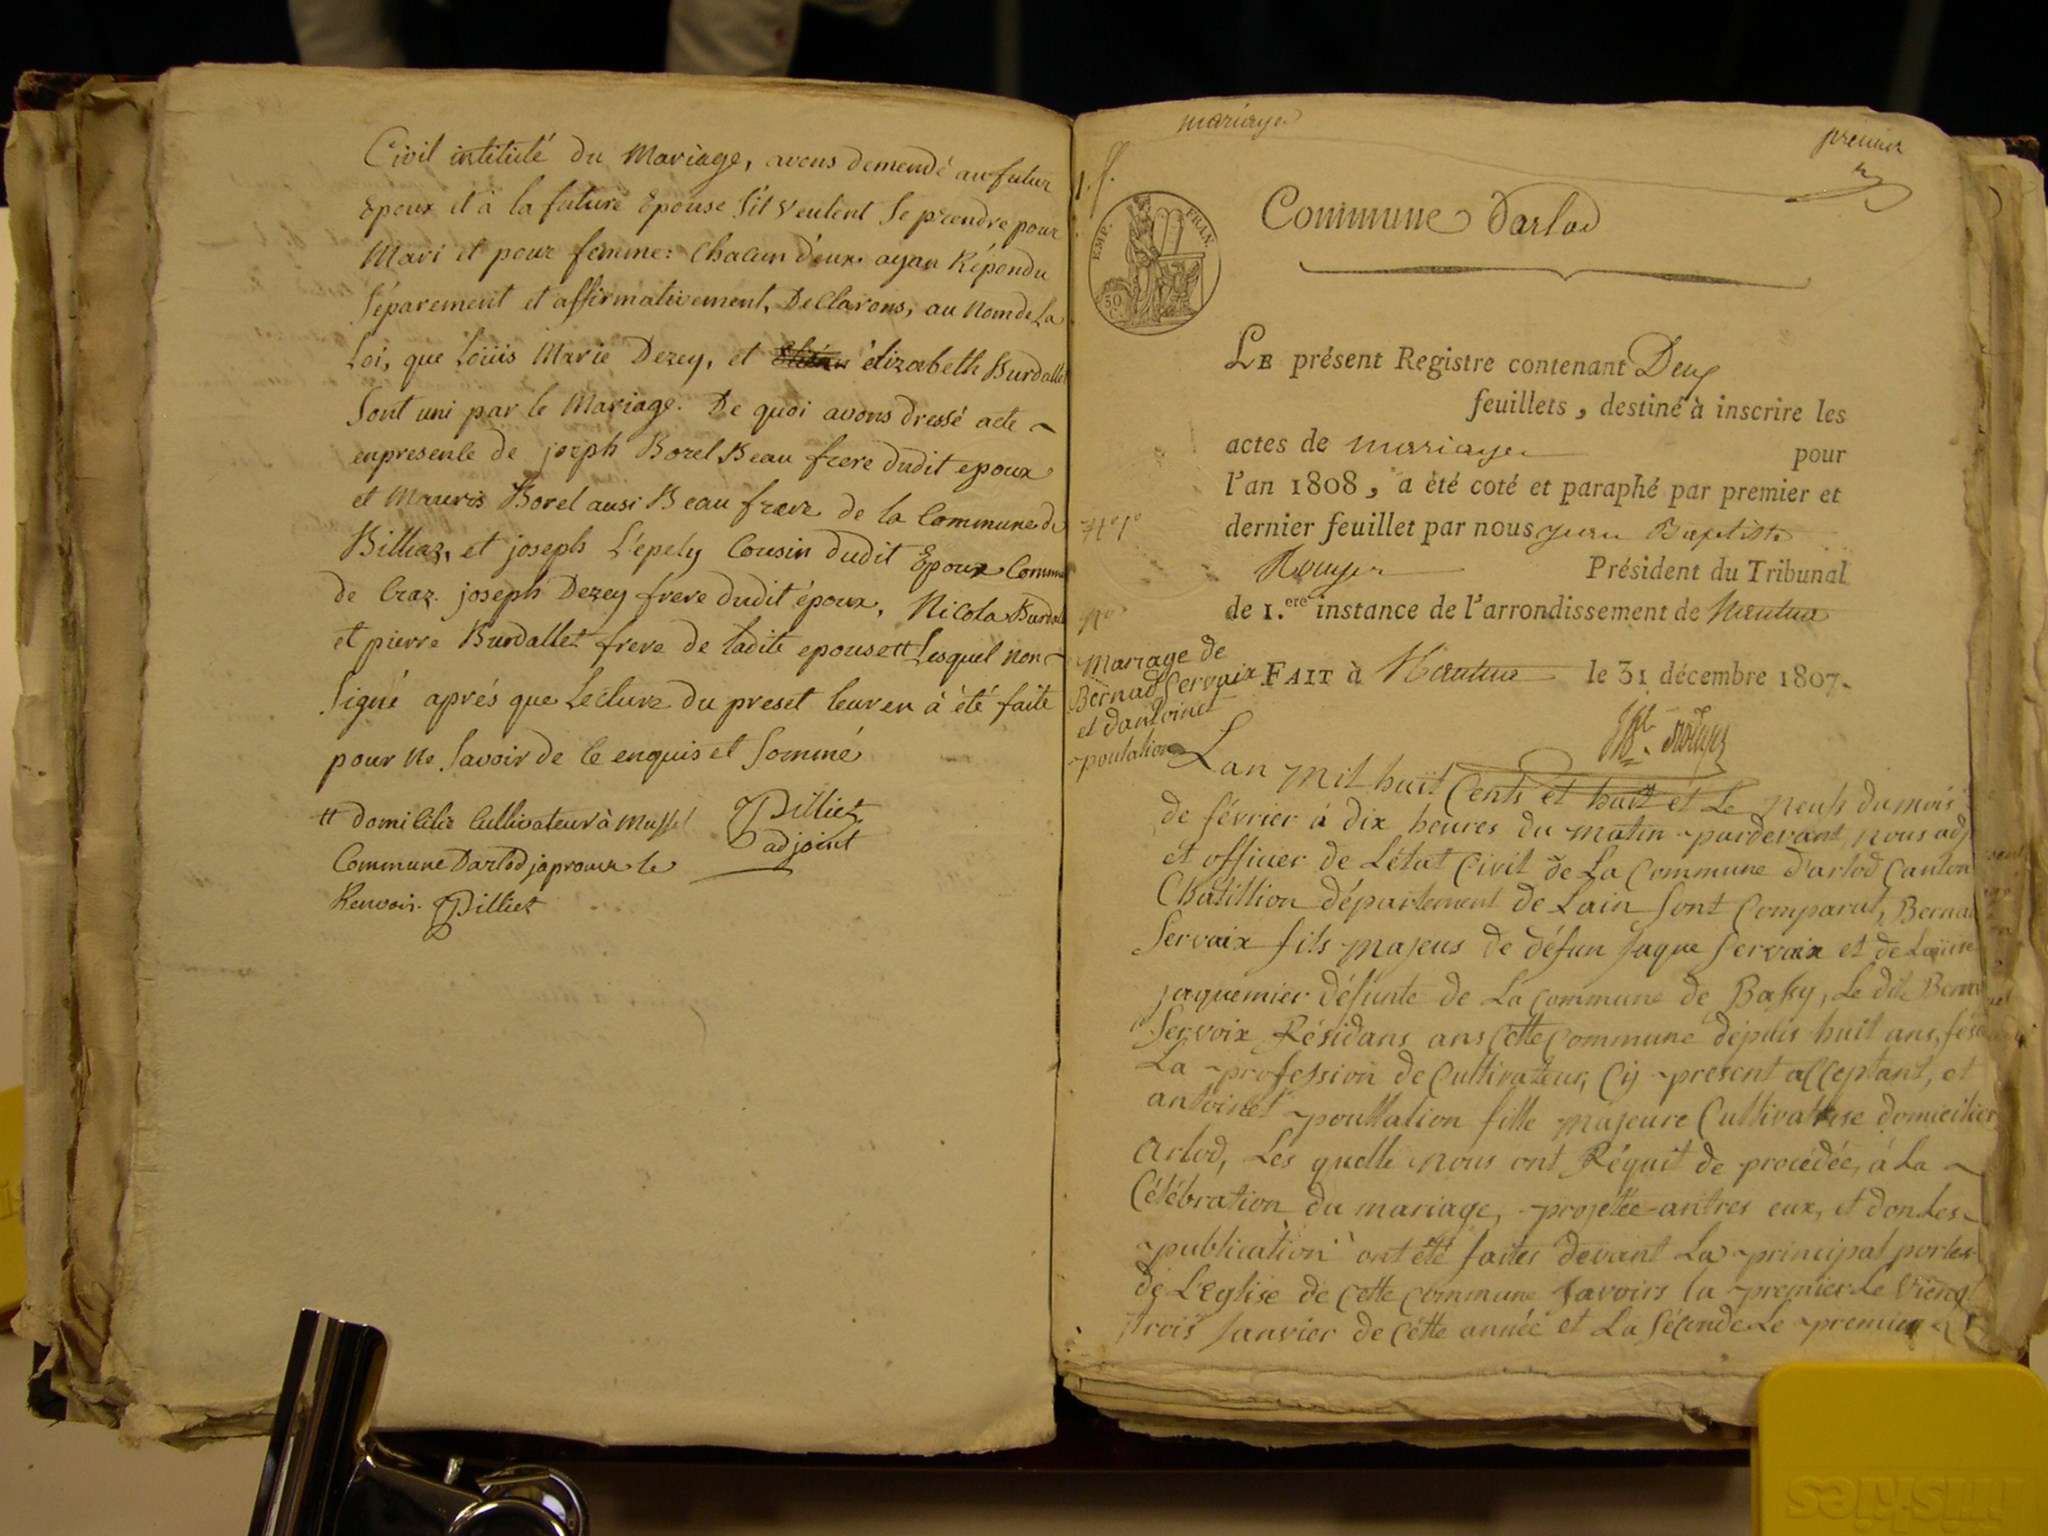 Civil intitulé du Mariage, avons demendé au futur
Epoux et à la future Epouse S'il veulent Se prendre pour
Mari et pour femme: Chacun d'eux ayan Répondu
Séparement et affirmativement, Declarons, au Nom de La
Loi, que Loüis Marie Dezey, et élizabeth Burdallet
Sont uni par le Mariage. De quoi avons dressé acte
enpresente de joseph Borel Beau frere dudit epoux
et Mauris Borel ausi Beau frere de la Commune de
Billiaz, et joseph L'épely Cousin dudit Epoux Commu
de Craz. joseph Dezey frere dudit époux, Nicola Burdal
et pierre Burdallet frere de ladite epouse # Lesquel non
Signé aprés que Lecture du preset leur en à été faite
pour Ne Savoir de Ce enquis et Sommé
# domicilié Cultivateur à Mussel
Commune Darlod japrouve le
Renvoir. Pilliet
Pilliet
adjoint
mariages
premier
1. f.
EMP. FRAN.
50
Commune Darlod
LE présent Registre contenant Deux
feuillets, destiné à inscrire les
actes de mariages pour
l'an 1808, a été coté et paraphé par premier et
dernier feuillet par nous jean Baptiste
Rouyer Président du Tribunal
de 1.ere instance de l'arrondissement de Nantua
FAIT à Nantua le 31 décembre 1807.
Mariage de
Bernad Servaix
et dantoinet
poutalion
Lan Mil huit Cents et huit et Le neufs du mois
de février à dix heures du matin pardevant nous adj
et officier de L'état Civil de La Commune d'arlod Canton
Chatillion département de Lain Sont Comparut, Bernad
Servaix fils majeus de défun Jaque Servaix et de Loüise
jaquemier défunte de La Commune de Bassy, Le dit Bernad
Servoix Résidans ans Cette Commune dépuis huit ans, fésd
La profession de Cultivateur, Cij présent acceptant, et
antoinet pouttalion fille majeure Cultivatrise domicilier
Arlod, Les quelle nous ont Réquit de procédée, à La
Célébration du mariage, projétée antres eux, et don Les
publication ont été faites devant La principal portes
de L'Eglise de Cette Commune Savoirs la premier Le Viengt
trois Janvier de Cétte année et La Séconde Le premier